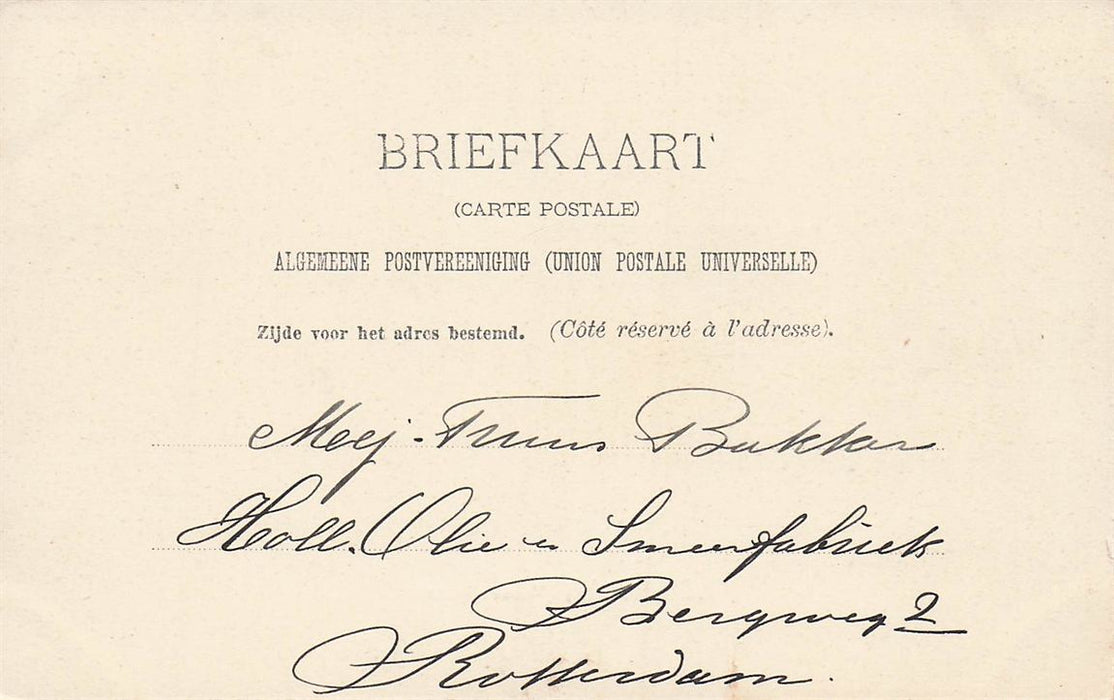 BRIEFKAART
(CARTE POSTALE)
ALGEMEENE POSTVEREENIGING (UNION POSTALE UNIVERSELLE)
Zijde voor het adres bestemd. (Côté réservé à l'adresse).
Mej. Truus Bakker
Holl. Olie en Smeerfabriek
Bergweg 2
Rotterdam.